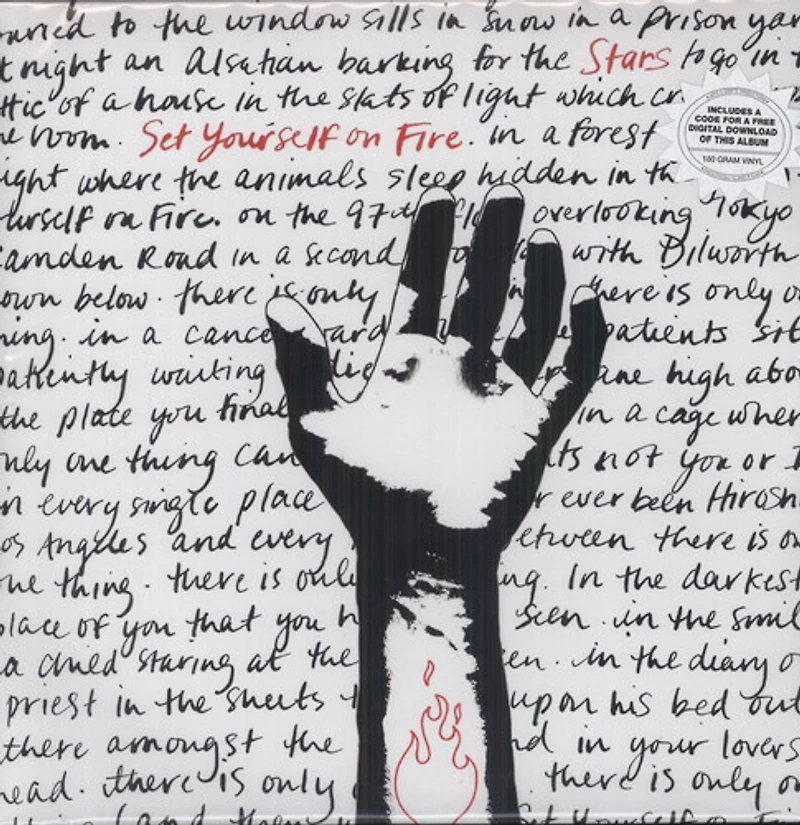 buried to the window sills in snow in a prison yar
t night an Alsatian barking for the Stars to go in
ttic of a house in the slats of light which
INCLUDES A
CODE FOR A FREE
DIGITAL DOWNLOAD
OF THIS ALBUM
180 GRAM VINYL
he room. Set Yourself on Fire. in a forest
ight where the animals sleep hidden in
urself on Fire. on the 97th overlooking Tokyo
amden Road in a second with Dilworth
own below. there is only here is only
hing. in a cance ard patients sit
patiently waiting ane high abo
the place you final in a cage wher
only one thing can its not you or
in every single place r ever been Hirosh
os Angeles and every etween there is
one thing. there is only ing. In the darkest
place of you that you h seen. in the smil
a child staring at the en. in the diary o
priest in the sheets upon his bed out
there amongst the nd in your lovers
head. there is only there is only
(and then Set Yourself on